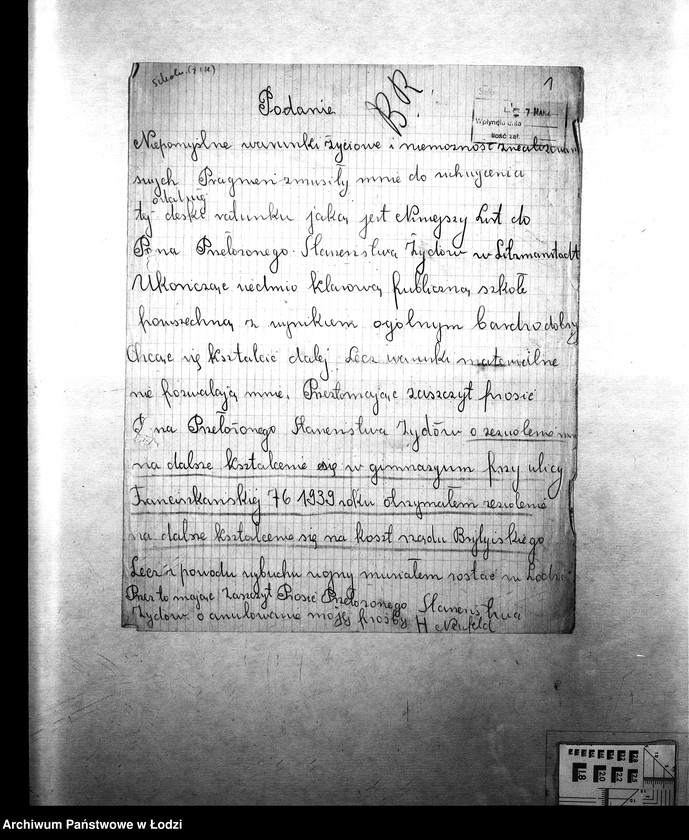 1
B.R.
7 MRZ.
Wpłynęło dnia
Ilość zał.
Podanie
Niepomyślne warunki życiowe i niemożność zrealizowania
swych Pragnień zmusiły mnie do uchwycenia
ostatniej
tej deski ratunku jaką jest Niniejszy List do
P na Przełożonego Starszeństwa Żydów w Litzmanstadt
Ukończąc siedmio klasową publiczną szkołe
powszechną z wynikiem ogólnym bardzo dobry
Chcąc się kształcić dalej. Lecz warunki materialne
nie pozwalają mnie. Przeto mając zaszczyt prosić
P na Przełożonego Starszeństwa Żydów o zezwolenie mi
na dalsze kształcenie się w gimnazyum przy ulicy
Franciszkańskiej 76 1939 roku otrzymałem zezolenie
na dalsze kształcenie się na koszt rządu Brytyiskiego
Lecz z powodu wybuchu wojny musiałem zostać w Łodzi
Przeto mając Zaszczyt Prosić Przełozonego Starszeństwa
Żydów o mojej prośby H Neufeld
18 20 22 25
Archiwum Państwowe w Łodzi